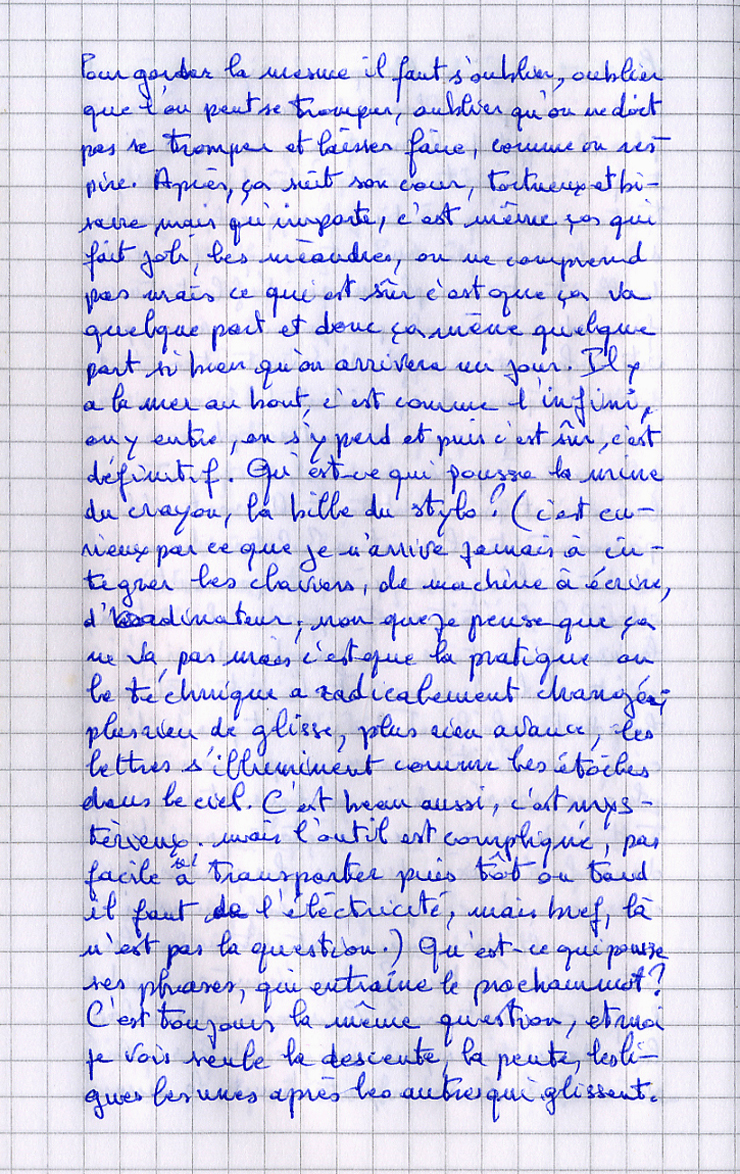 Pour garder la mesure il faut s'oublier, oublier
que l'on peut se tromper, oublier qu'on ne doit
pas se tromper et laisser faire, comme on res-
pire. Après, ça suit son cour, tortueux et bi-
zarre mais qu'importe, c'est même ça qui
fait joli, les méandres, on ne comprend
pas mais ce qui est sûr c'est que ça va
quelque part et donc ça mène quelque
part si bien qu'on arrivera un jour. Il y
a la mer au bout, c'est comme l'infini,
on y entre, on s'y perd et puis c'est sûr, c'est
définitif. Qu'est-ce qui pousse la mine
du crayon, la bille du stylo ? (c'est cu-
rieux parce que je n'arrive jamais à in-
tégrer les claviers, de machine à écrire,
d'ordinateur, non que je pense que ça
ne va pas mais c'est que la pratique ou
la technique a radicalement changé;
plus rien de glisse, plus rien avance, les
lettres s'illuminent comme les étoiles
dans le ciel. C'est beau aussi, c'est mys-
térieux. mais l'outil est compliqué, pas
facile à transporter puis tôt ou tard
il faut de l'éléctricité, mais bref, là
n'est pas la question.) Qu'est-ce qui pousse
ses phrases, qui entraîne le prochain mot ?
C'est toujours la même question, et moi
je vois seule la descente, la pente, les li-
gnes les unes après les autres qui glissent.